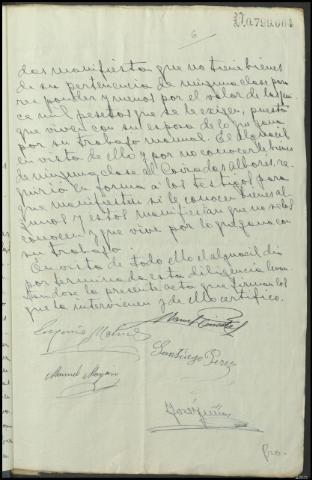 6
das manifiesta que no tiene bienes
de su pertenencia de ninguna clase para
responder y menos por el valor de las
mil pesetas que se le exigen, puesto
que vive con su esposa de lo que gana
por su trabajo manual. El alguacil
en vista de ello y por no conocerle bienes
de ninguna clase al Conrado Albores, re-
quirió en forma a los testigos para
que manifiesten si le conocen bienes al-
gunos y estos manifiestan que no se los
conocen y que vive por lo que gana con
su trabajo.
En vista de todo ello el alguacil dio
por terminada esta diligencia
la presente acta que firman los
que la intervienen y de ello certifico.
Eugenio
Santiago Perez
Manuel Moyan
José
Pro-